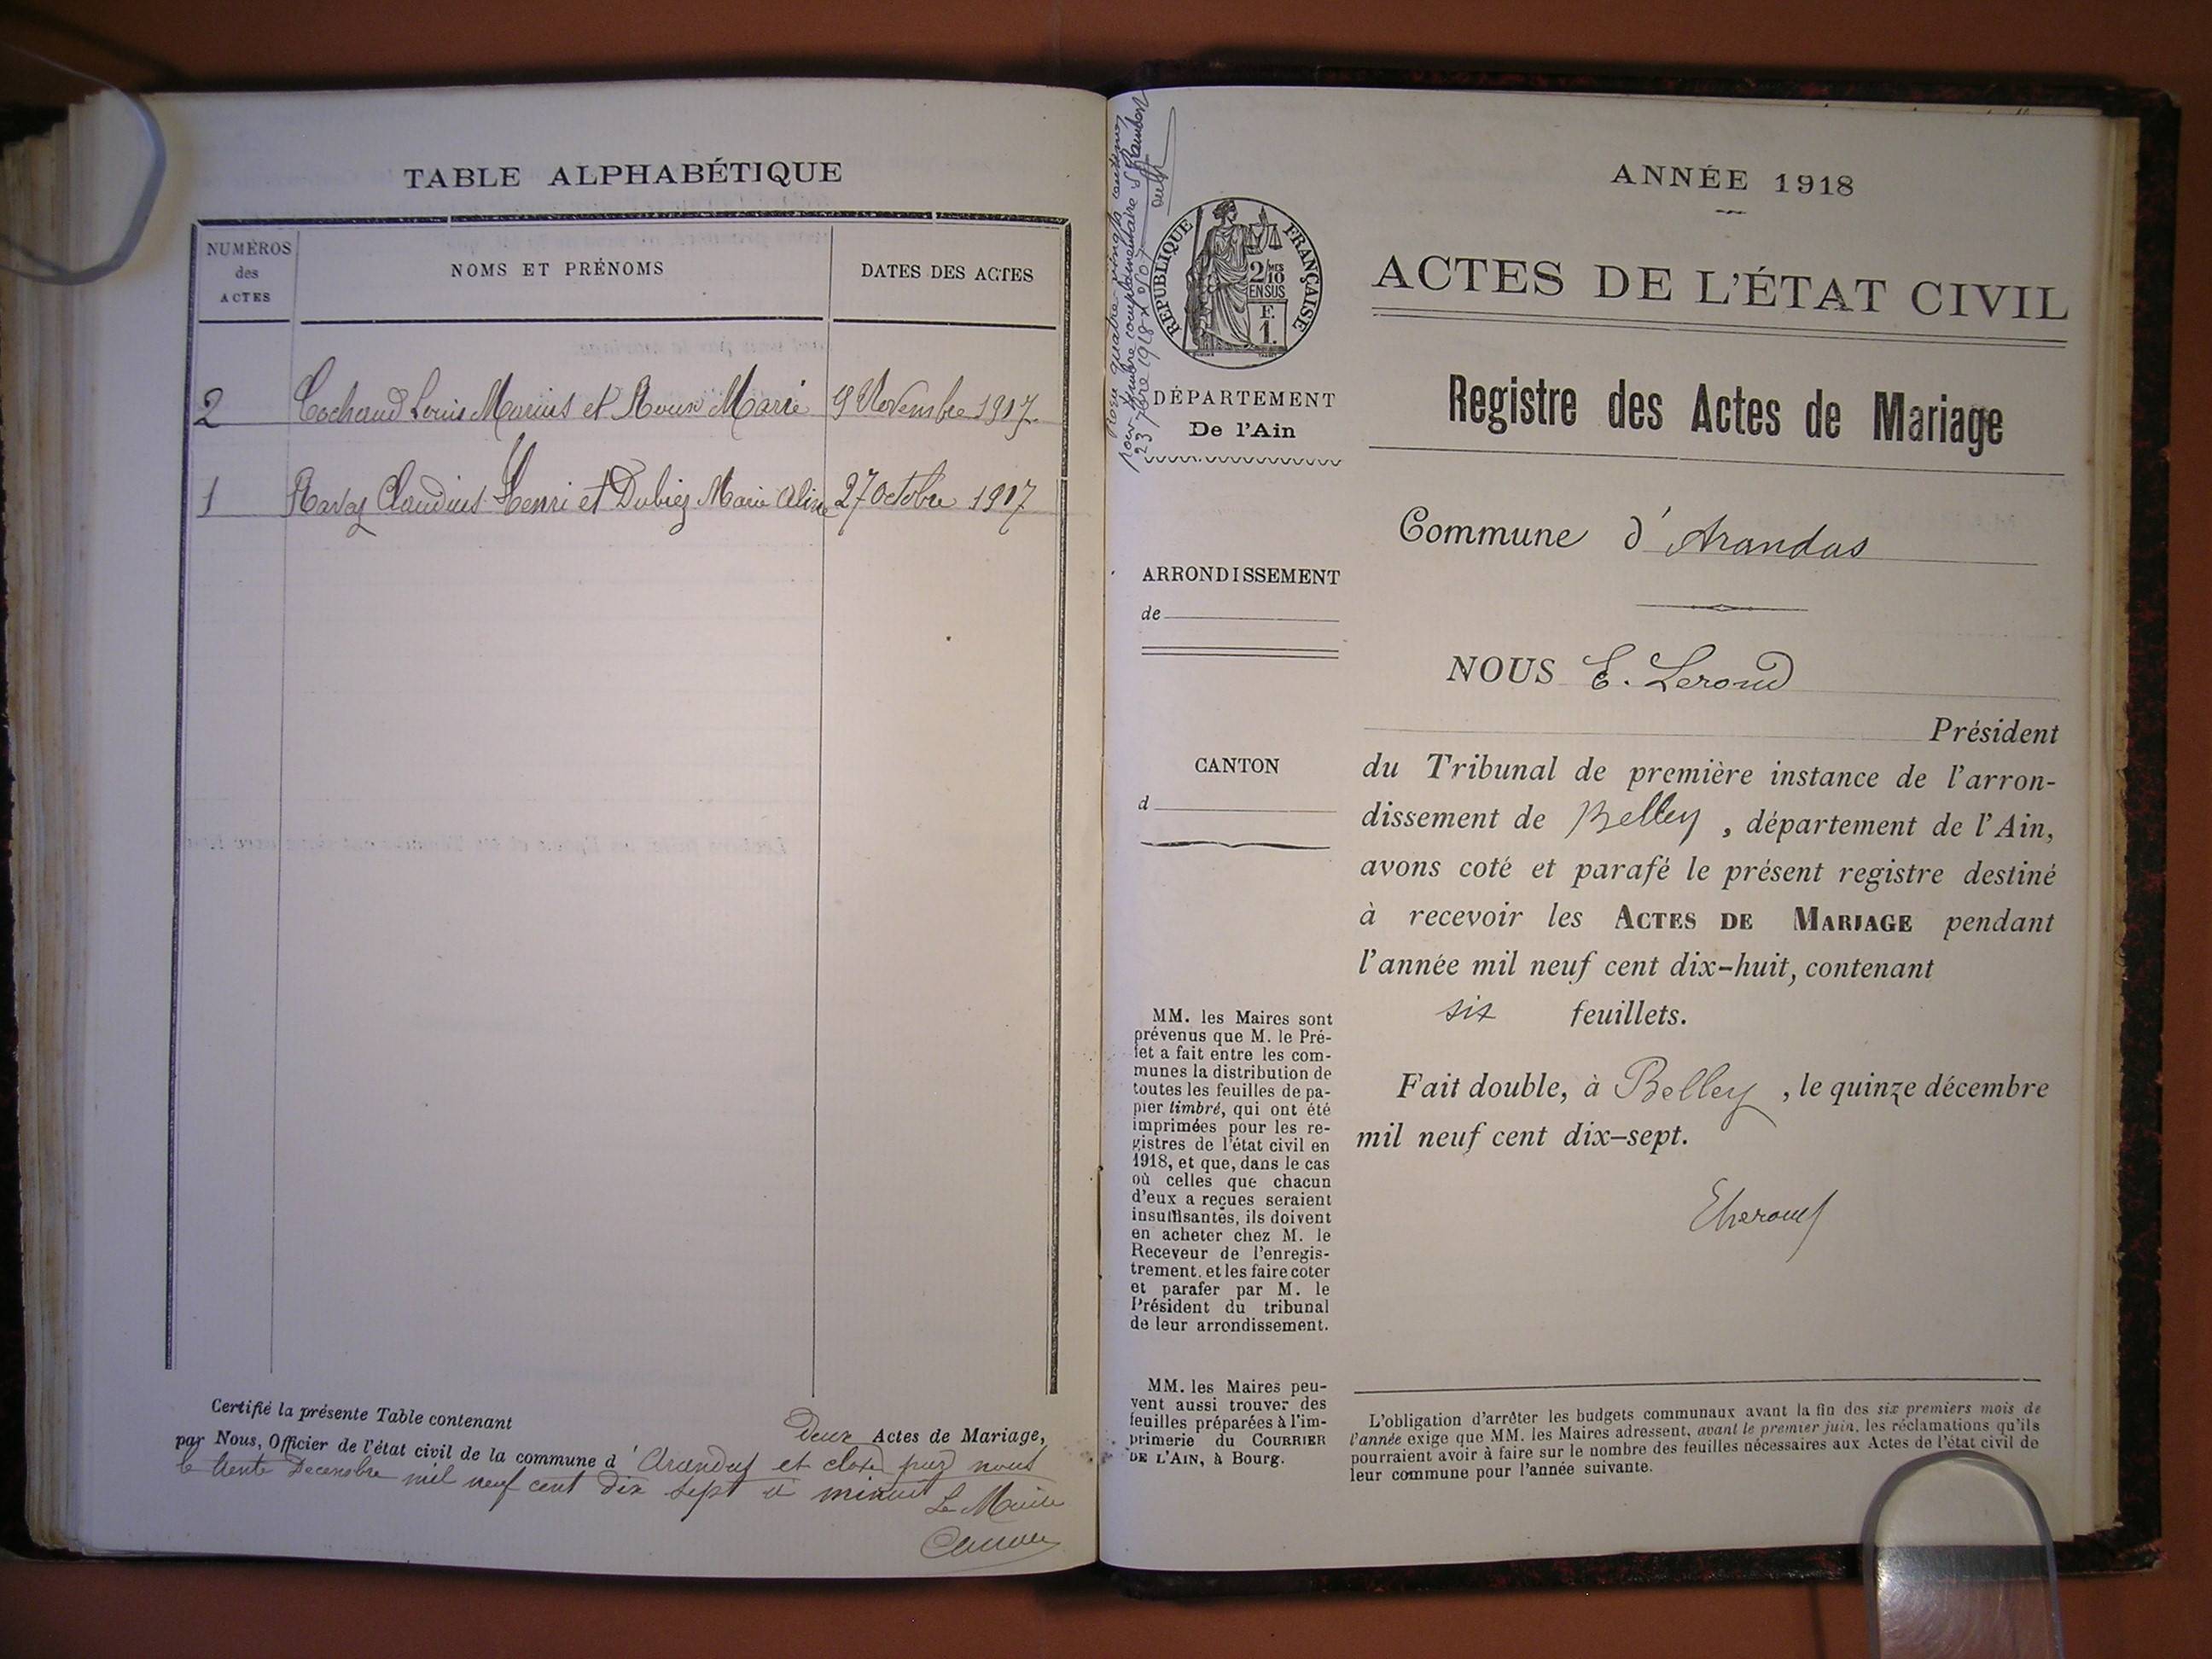 TABLE ALPHABÉTIQUE
NUMÉROS
des
ACTES
NOMS ET PRÉNOMS
DATES DES ACTES
2 Cochaud Louis Marius et Roux Marie 9 Novembre 1917
1 Ravoz Claudius Henri et Dubiez Marie Aline 27 octobre 1917
Certifié la présente Table contenant Deux Actes de Mariage,
par Nous, Officier de l'état civil de la commune d' Arandas et close par nous
le trente Decembre mil neuf cent dix sept à minuit
Le Maire
quatre-vingts centimes
pour timbre complémentaire St Rambert
23 1918
RÉPUBLIQUE FRANÇAISE
2/10MES
EN SUS
F.
1.
DÉPARTEMENT
De l'Ain
ARRONDISSEMENT
de
CANTON
d
MM. les Maires sont
prévenus que M. le Pré-
fet a fait entre les com-
munes la distribution de
toutes les feuilles de pa-
pier timbré, qui ont été
imprimées pour les re-
gistres de l'état civil en
1918, et que, dans le cas
où celles que chacun
d'eux a reçues seraient
insuffisantes, ils doivent
en acheter chez M. le
Receveur de l'enregis-
trement. et les faire coter
et parafer par M. le
Président du tribunal
de leur arrondissement.
MM. les Maires peu-
vent aussi trouver des
feuilles préparées à l'im-
primerie du COURRIER
DE L'AIN, à Bourg.
ANNÉE 1918
ACTES DE L'ÉTAT CIVIL
Registre des Actes de Mariage
Commune d' Arandas
NOUS E. Leroud
Président
du Tribunal de première instance de l'arron-
dissement de Belley, département de l'Ain,
avons coté et parafé le présent registre destiné
à recevoir les ACTES DE MARIAGE pendant
l'année mil neuf cent dix-huit, contenant
six feuillets.
Fait double, à Belley, le quinze décembre
mil neuf cent dix-sept.
L'obligation d'arrêter les budgets communaux avant la fin des six premiers mois de
l'année exige que MM. les Maires adressent, avant le premier juin, les réclamations qu'ils
pourraient avoir à faire sur le nombre des feuilles nécessaires aux Actes de l'état civil de
leur commune pour l'année suivante.